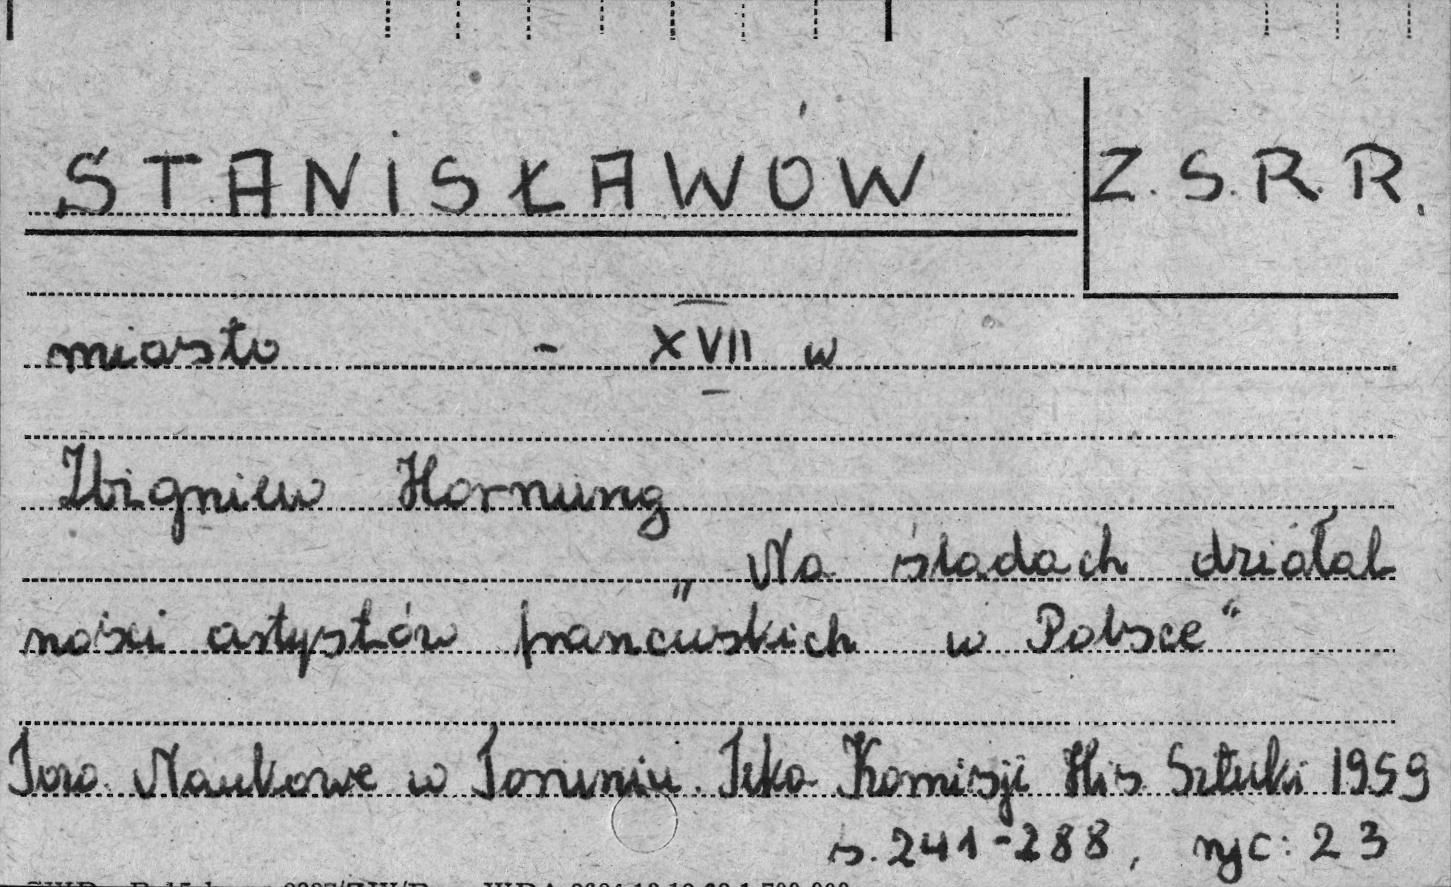 STANISŁAWÓW Z.S.R.R.
miasto - XVII w
Zbigniew Hornung
„Na śladach działal
ności artystów francuskich w Polsce“
Tow. Naukowe w Toruniu. Teka Komisji His. Sztuki 1959
s. 241-288, ryc: 23